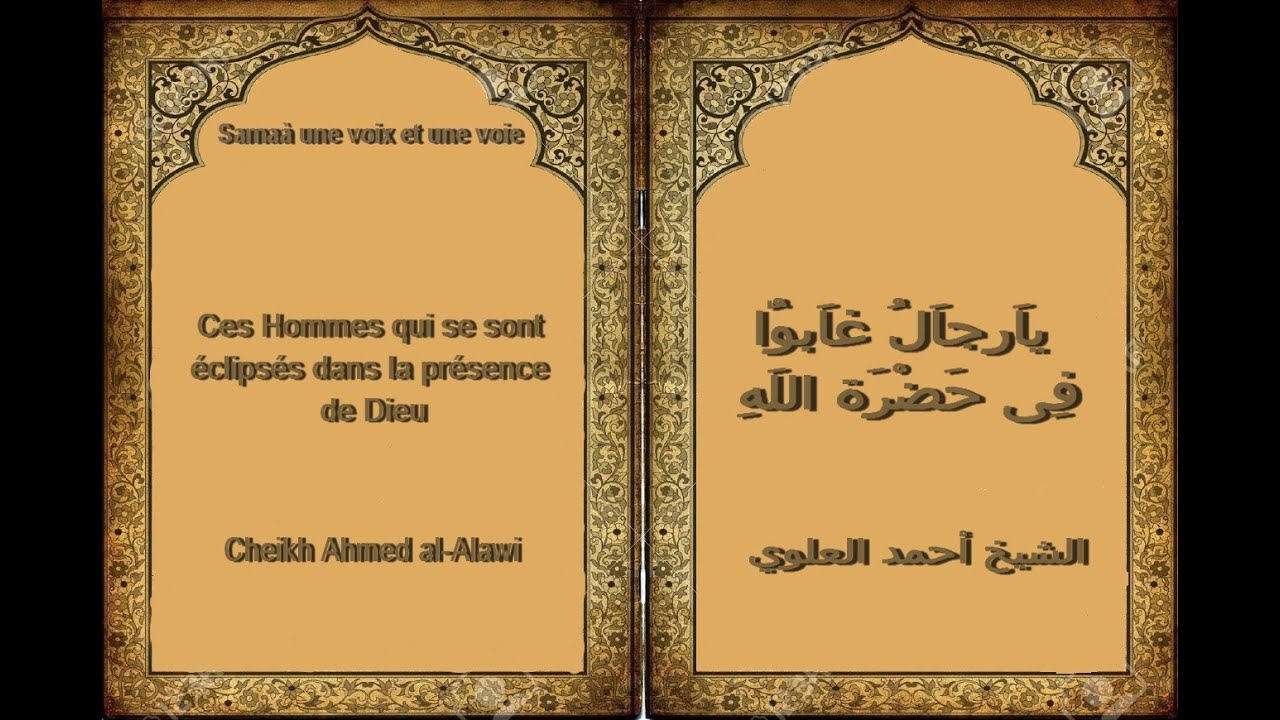 Samaà une voix et une voie
Ces Hommes qui se sont
éclipsés dans la présence
de Dieu
Cheikh Ahmed al-Alawi
ياَرجاَلٌ غاَبوُا
فِى حَضْرَة اللَهِ
الشيخ أحمد العلوي